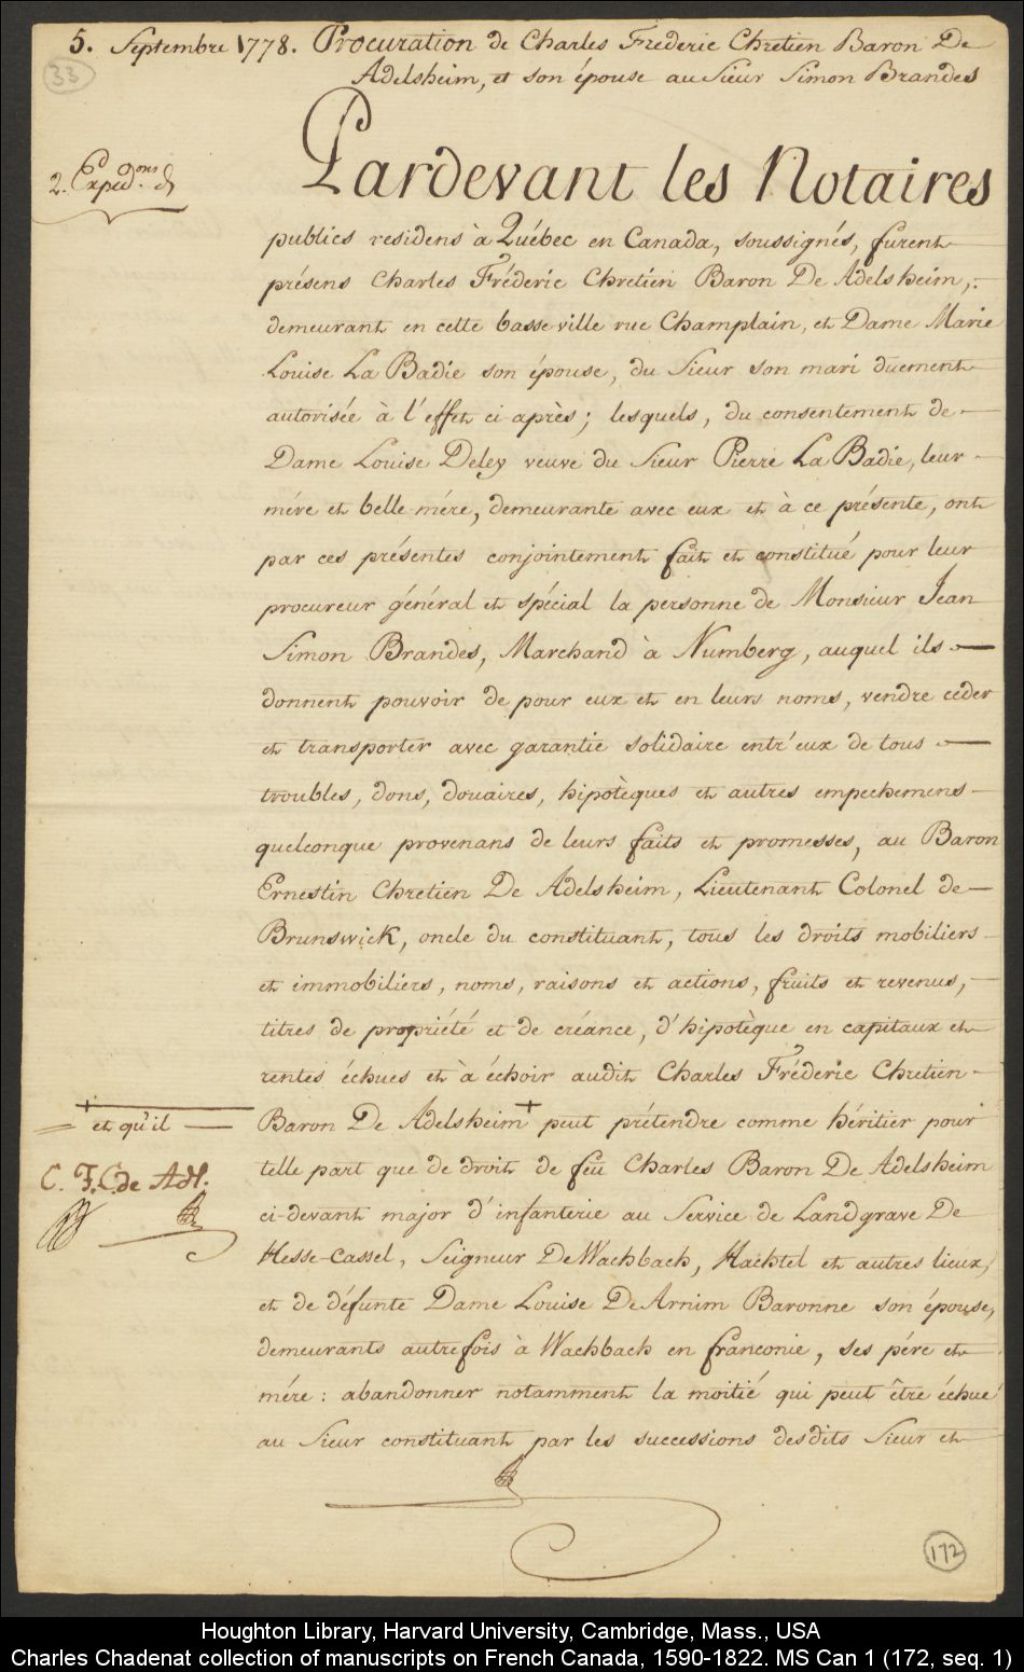 5. Septembre 1778. Procuration de Charles Frederic Chretien Baron De
Adelsheim, et son épouse au Sieur Simon Brandes
33
2. Exped.ons
Pardevant les Notaires
publics residens à Québec en Canada, soussignés, furent
présens Charles Fréderic Chretien Baron De Adelsheim,
demeurant en cette basse ville rue Champlain, et Dame Marie
Louise La Badie son épouse, du Sieur son mari duement
autorisée à l'effet ci après; lesquels, du consentement de
Dame Louise Deley veuve du Sieur Pierre La Badie, leur
mére et belle mére, demeurante avec eux et à ce présente, ont
par ces présentes conjointement fait et constitué pour leur
procureur général et spécial la personne de Monsieur Jean
Simon Brandes, Marchand à Numberg, auquel ils
donnent pouvoir de pour eux et en leurs noms, vendre céder
et transporter avec garantie solidaire entr'eux de tous
troubles, dons, douaires, hipotèques et autres empechemens
quelconque provenans de leurs faits et promesses, au Baron
Ernestin Chretien De Adelsheim, Lieutenant Colonel de
Brunswick, oncle du constituant, tous les droits mobiliers
et immobiliers, noms, raisons et actions, fruits et revenus,
titres de propriété et de créance, d'hipotèque en capitaux et
rentes échues et à échoir audit Charles Fréderic Chretien
+
et qu'il
Baron De Adelsheim + peut prétendre comme héritier pour
C. F. C. de Adl.
telle part que de droit de feu Charles Baron De Adelsheim
ci-devant major d'infanterie au Service de Landgrave De
Hesse-Cassel, Seigneur De Wachbach, Hachtel et autres lieux,
et de défunte Dame Louise De Arnim Baronne son épouse,
demeurants autrefois à Wachbach en franconie, ses pére et
mére : abandonner notamment la moitié qui peut être échue
au Sieur constituant par les successions desdits Sieur et
172
Houghton Library, Harvard University, Cambridge, Mass., USA
Charles Chadenat collection of manuscripts on French Canada, 1590-1822. MS Can 1 (172, seq. 1)